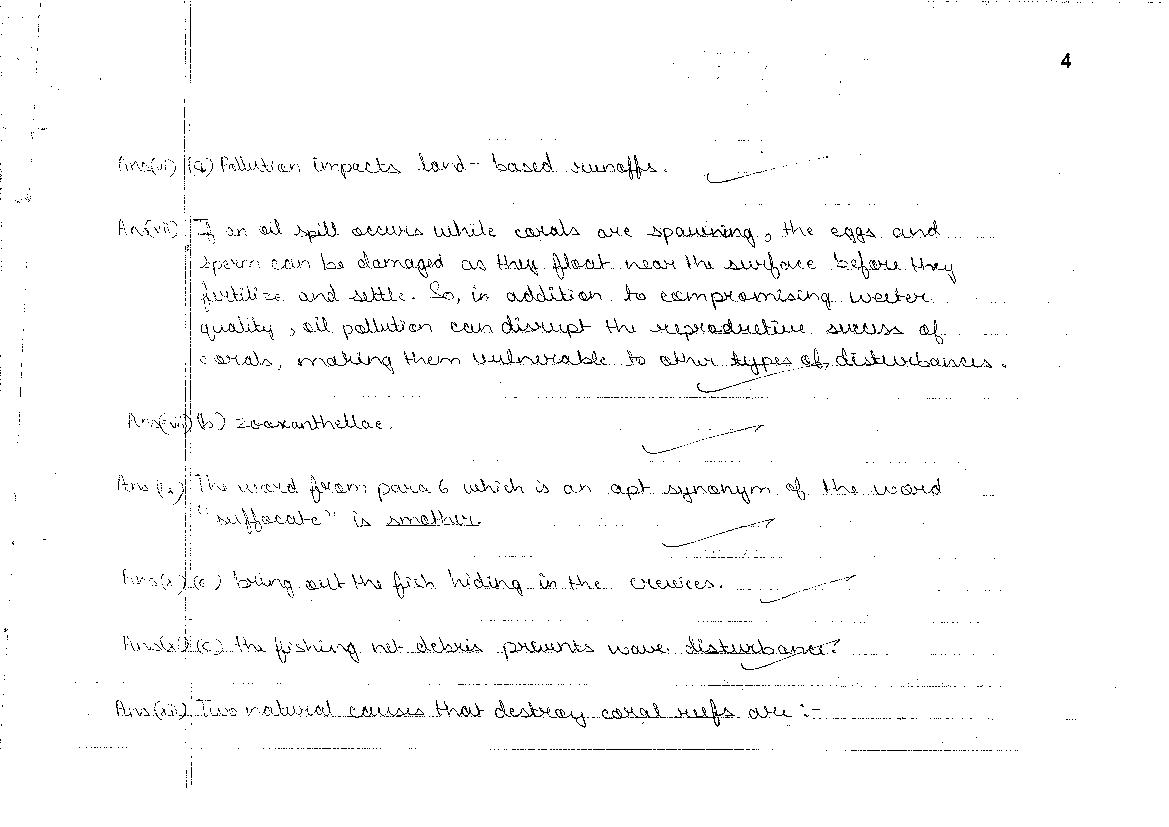 4
Ans(vi) (a) Pollution impacts land- based runoffs.
Ans(vii) If an oil spill occurs while corals are spawning, the eggs and
sperm can be damaged as they float near the surface before they
fertilize and settle. So, in addition to compromising water
quality, oil pollution can disrupt the reproductive success of
corals, making them vulnerable to other types of disturbances.
Ans(viii) (b) zooxanthellae.
Ans (ix) The word from para 6 which is an apt synonym of the word
"suffocate" is smother.
Ans(x) (c) bring out the fish hiding in the crevices.
Ans(xi) (c) the fishing net debris prevents wave disturbance.
Ans(xii) Two natural causes that destroy coral reefs are :-